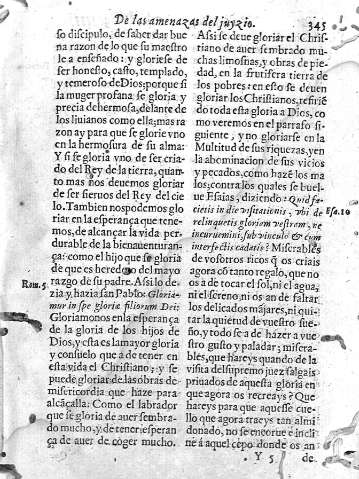 De las amenazas del juyzio. 345
so discipulo, de saber dar bue
na razon de lo que su maestro
le a enseñado: y gloriese de
ser honesto, casto, templado,
y temeroso de Dios; porque si
la muger profana se gloria y
precia de hermosa, delante de
los liuianos como ella; mas ra
zon ay para que se glorie vno
en la hermosura de su alma:
Y si se gloria vno de ser cria-
do del Rey de la tierra, quan-
to mas nos deuemos gloriar
de ser sieruos del Rey del cie
lo. Tambien nos podemos glo
riar en la esperança que tene-
mos, de alcançar la vida per-
durable de la bienauenturan-
ça: como el hijo que se gloria
de que es heredero del mayo
Rom. 5. razgo de su padre. Assi lo de-
zia y hazia san Pablo: Gloria-
mur in spe gloriæ filiorum Dei:
Gloriamonos en la esperança
de la gloria de los hijos de
Dios, y esta es la mayor gloria
y consuelo que a de tener en
esta vida el Christiano; y se
puede gloriar de las obras de
misericordia que haze para
alcãçalla: Como el labrador
que se gloria de auer sembra-
do mucho, y de tener esperan
ça de auer de coger mucho.
Assi se deue gloriar el Chris-
tiano de auer sembrado mu-
chas limosnas, y obras de pie-
dad, en la frutifera tierra de
los pobres: en esto se deuen
gloriar los Christianos, refirié
do toda esta gloria a Dios, co
mo veremos en el parrafo si-
guiente, y no gloriarse en la
Multitud de sus riquezas, y en
la abominacion de sus vicios
y pecados, como hazé los ma
los; contra los quales se buel-
ue Esaias, diziendo: Quid fa-
cietis in die visitationis, vbi de Esa. 10
relinquetis gloriam vestram, ne
incuruemini sub vinculo & cum
interfectis cadatis? Miserables
de vosotros ricos q̃ os criais
agora cõ tanto regalo, que no
os a de tocar el sol, ni el agua,
ni el sereno, ni os an de faltar
los delicados májares, ni qui-
tar la quietud de vuestro sue-
ño, y todo se a de hazer a vue
stro gusto y paladar; misera-
bles, que hareys quando de la
visita del supremo juez salgais
priuados de aquesta gloria en
que agora os recreays? Que
hareys para que aquesse cue-
llo que agora traeys tan almi
donado, no se encorue e incli
ne á aquel cepo donde os an
Y 5 de